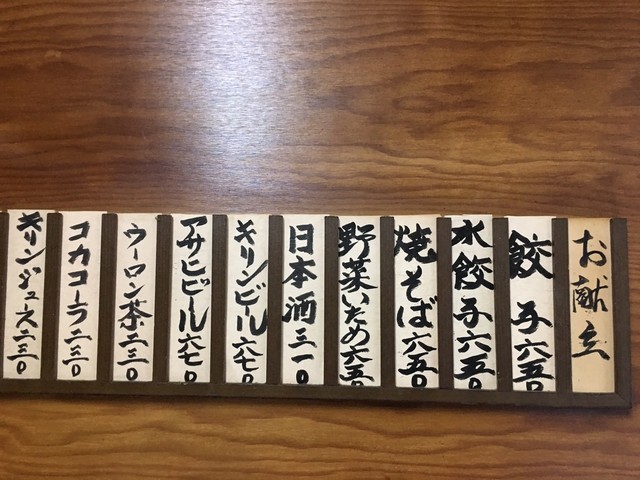 お献立
餃子六五0
水餃子六五0
焼そば六五0
野菜いため六五0
日本酒三一0
キリンビール六七0
アサヒビール六七0
ウーロン茶二三0
コカコーラ二三0
キリンジュース二三0